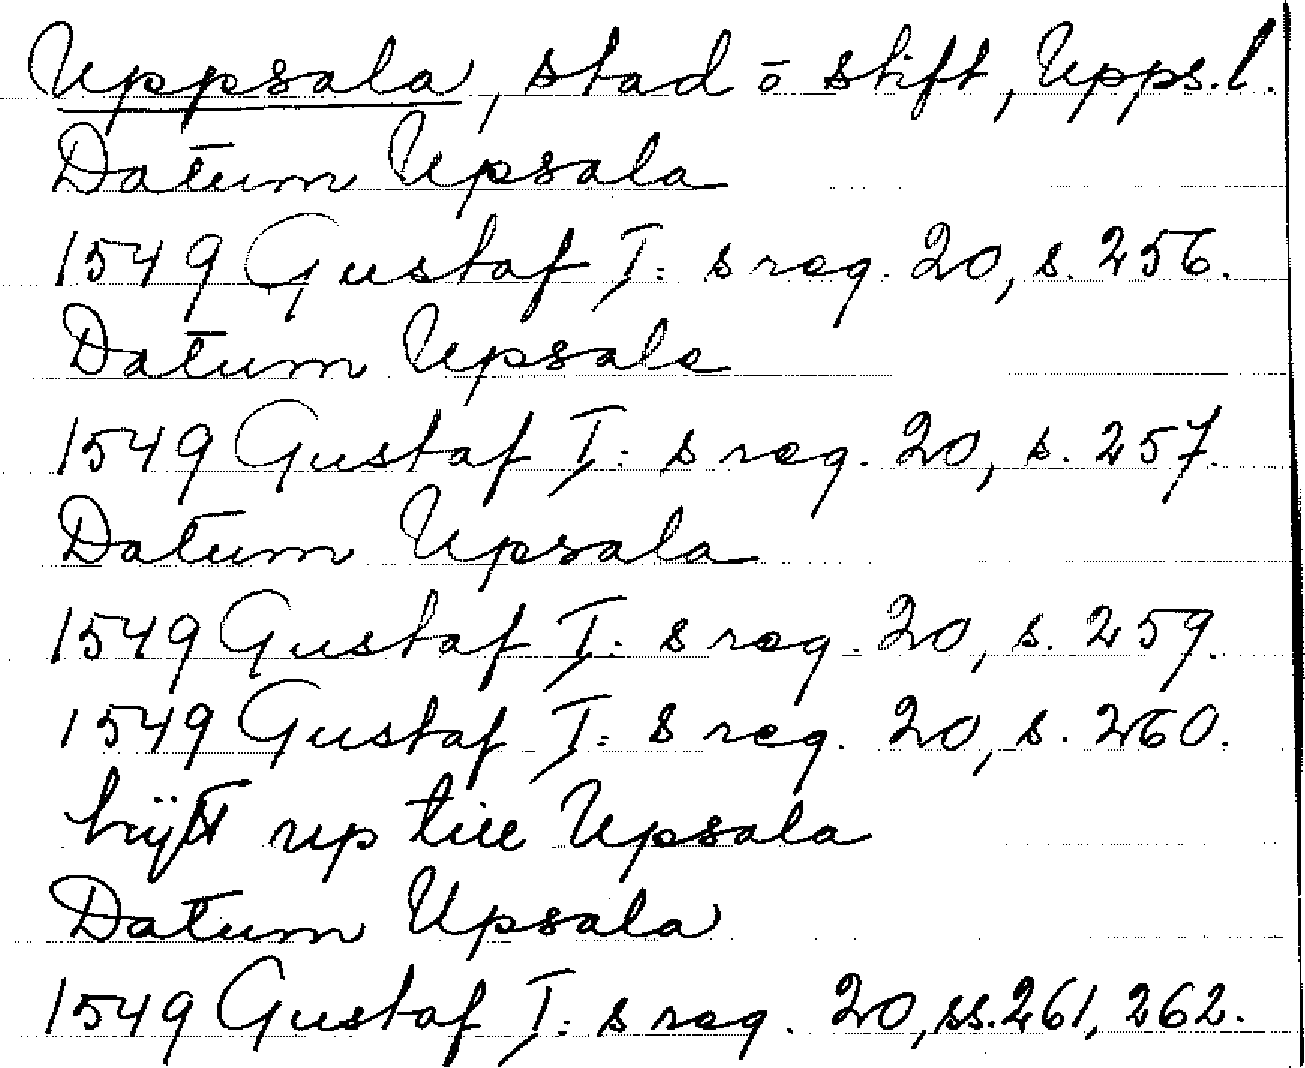 Uppsala, stad o stift, Upps.l.
Datum Upsala
1549 Gustaf I: s reg. 20, s. 256.
Datum Upsala
1549 Gustaf I: s reg. 20, s. 257.
Datum Upsala
1549 Gustaf I: s reg. 20, s. 259.
1549 Gustaf I: s reg. 20, s. 260.
up till Upsala
Datum Upsala
1549 Gustaf I: s reg. 20, ss. 261, 262.